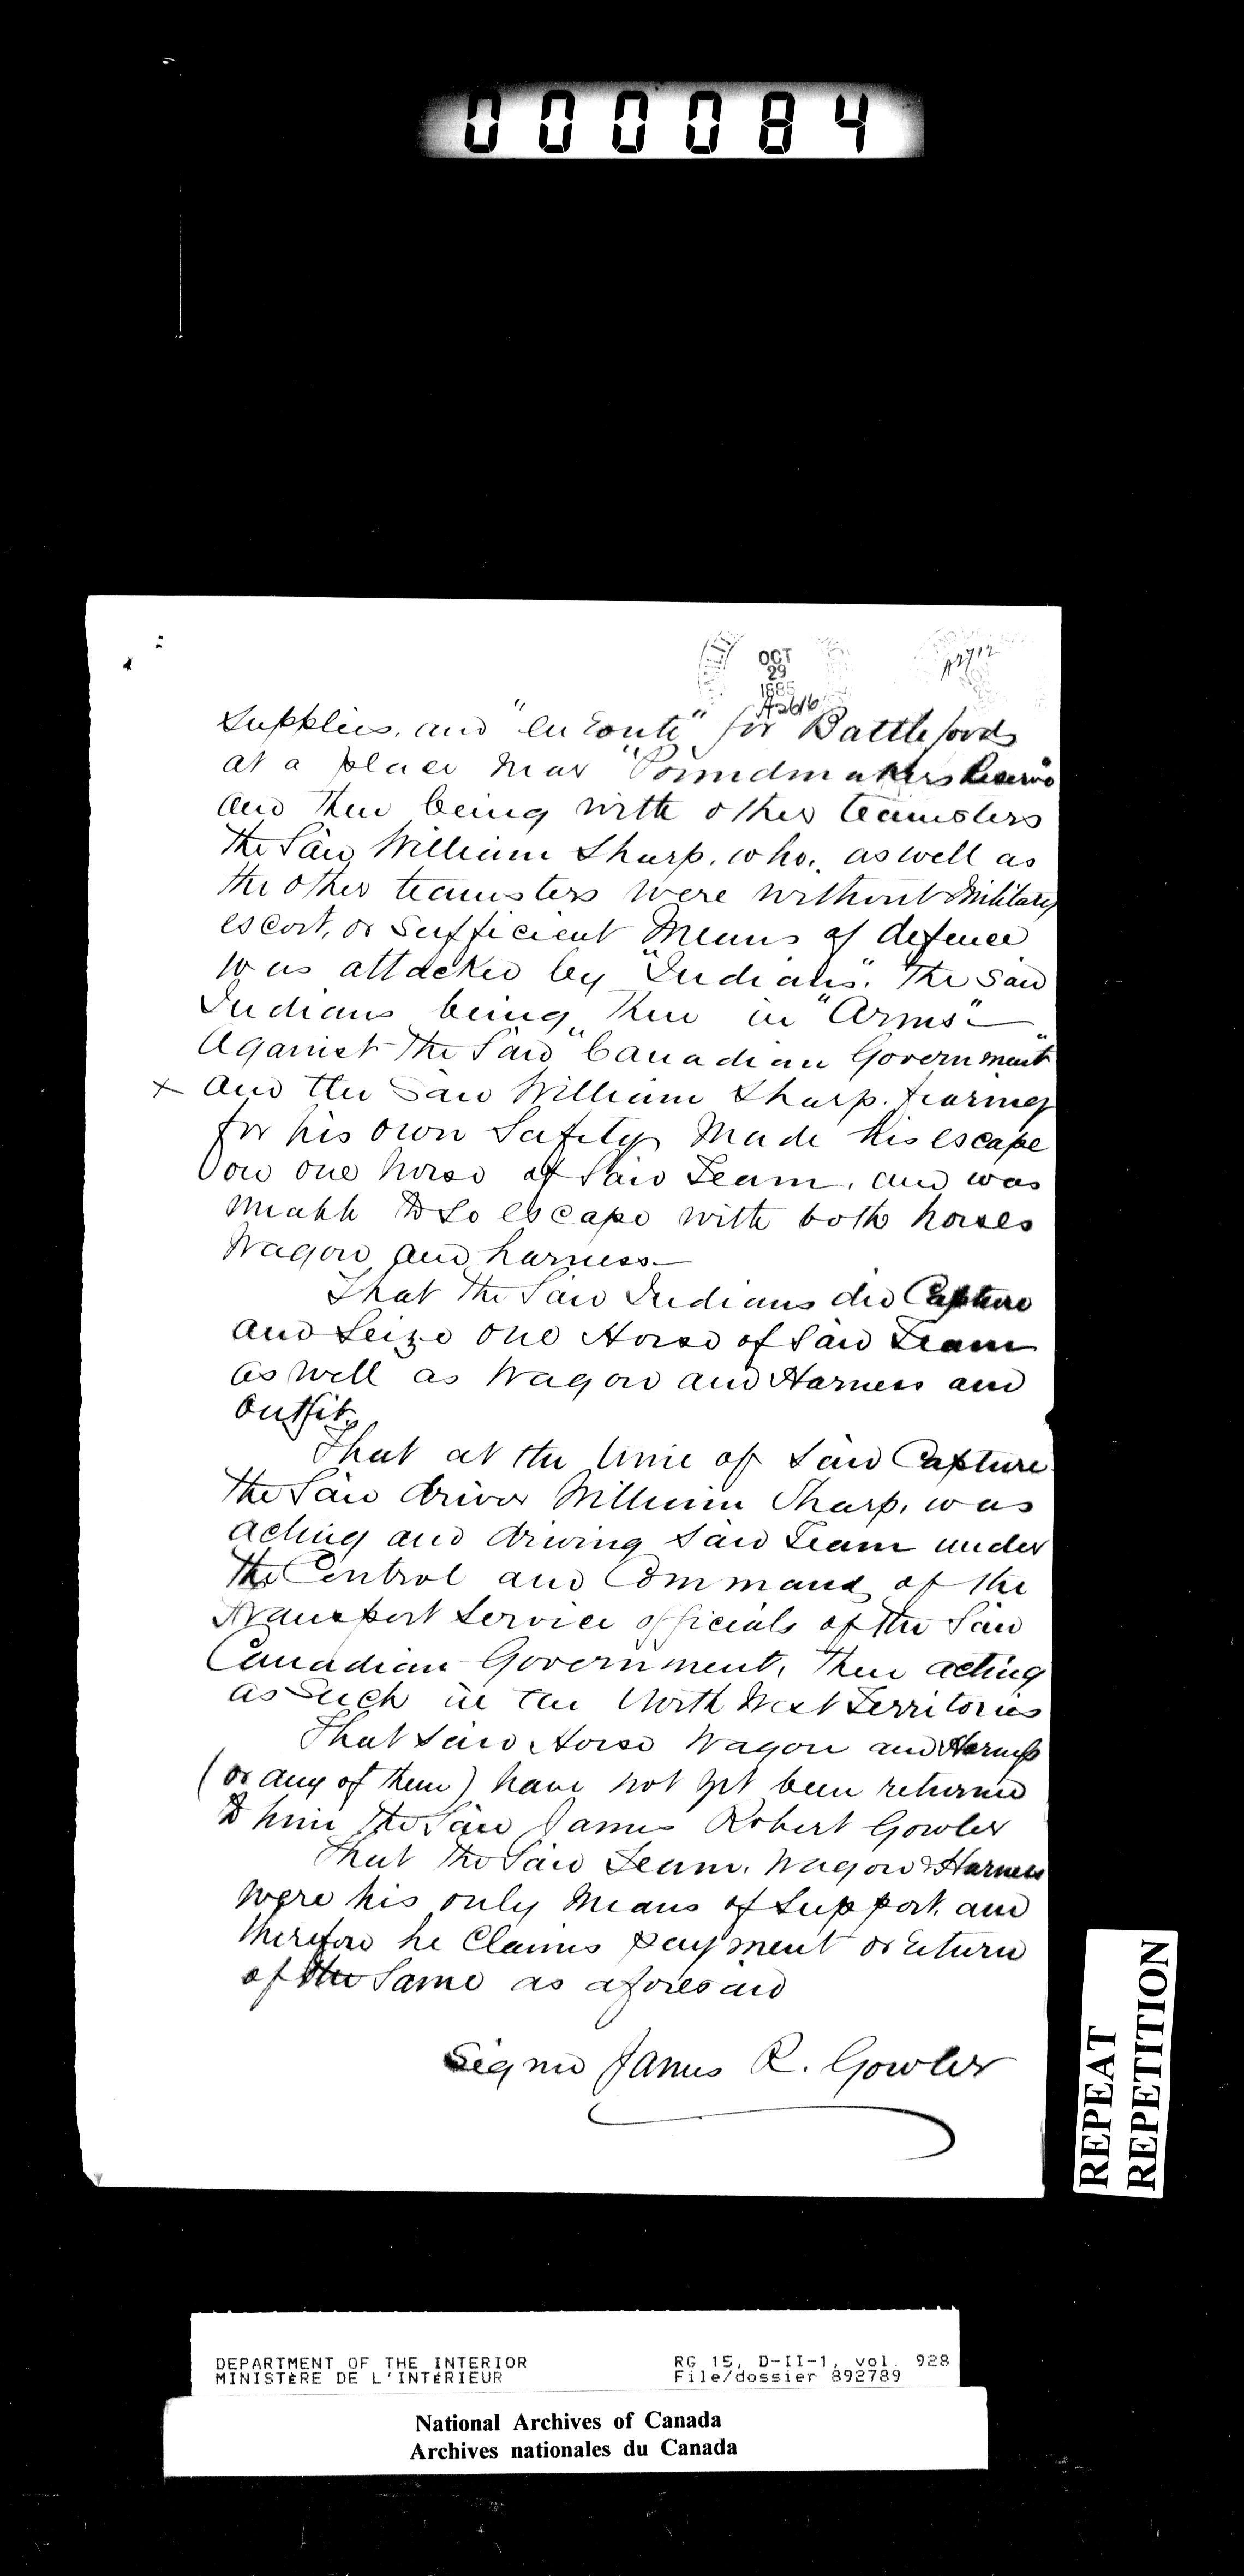 000084
OCT
29
1885
A2616
A2712
Supplies, and "en route" for Battleford
at a place near "Poundmakers Reserve"
and then being with other teamsters
the said William Sharp. who. as well as
the other teamsters were without Military
escort, or sufficient Means of defence
was attacked by "Indians". The said
Indians being then in "Arms" —
Against the said "Canadian Government"
x and the said William Sharp. fearing
for his own safety Made his escape
on one horse of said Team, and was
unable to so escape with both horses
Wagon and harness —
That the said Indians did Capture
and seize one Horse of said Team
as well as Wagon and Harness and
outfit.
That at the time of said Capture
the said driver William Sharp, was
acting and driving said Team under
the Control and Command of the
Transport Service officials of the said
Canadian Government, then acting
as such in the North West Territories
That said Horse Wagon and Harness
(or any of them) have not yet been returned
to him the said James Robert Gowler
That the said Team, Wagon & Harness
were his only Means of Support, and
therefore he Claims payment or return
of the same as aforesaid
Signed James R. Gowler
REPEAT
REPETITION
DEPARTMENT OF THE INTERIOR RG 15, D-II-1, vol. 928
MINISTÈRE DE L'INTÉRIEUR File/dossier 892789
National Archives of Canada
Archives nationales du Canada